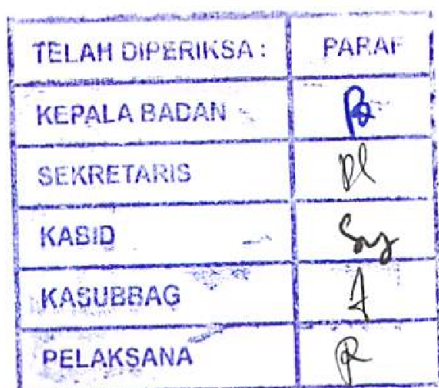 TELAH DIPERIKSA : PARAF
KEPALA BADAN
SEKRETARIS
KABID
KASUBBAG
PELAKSANA